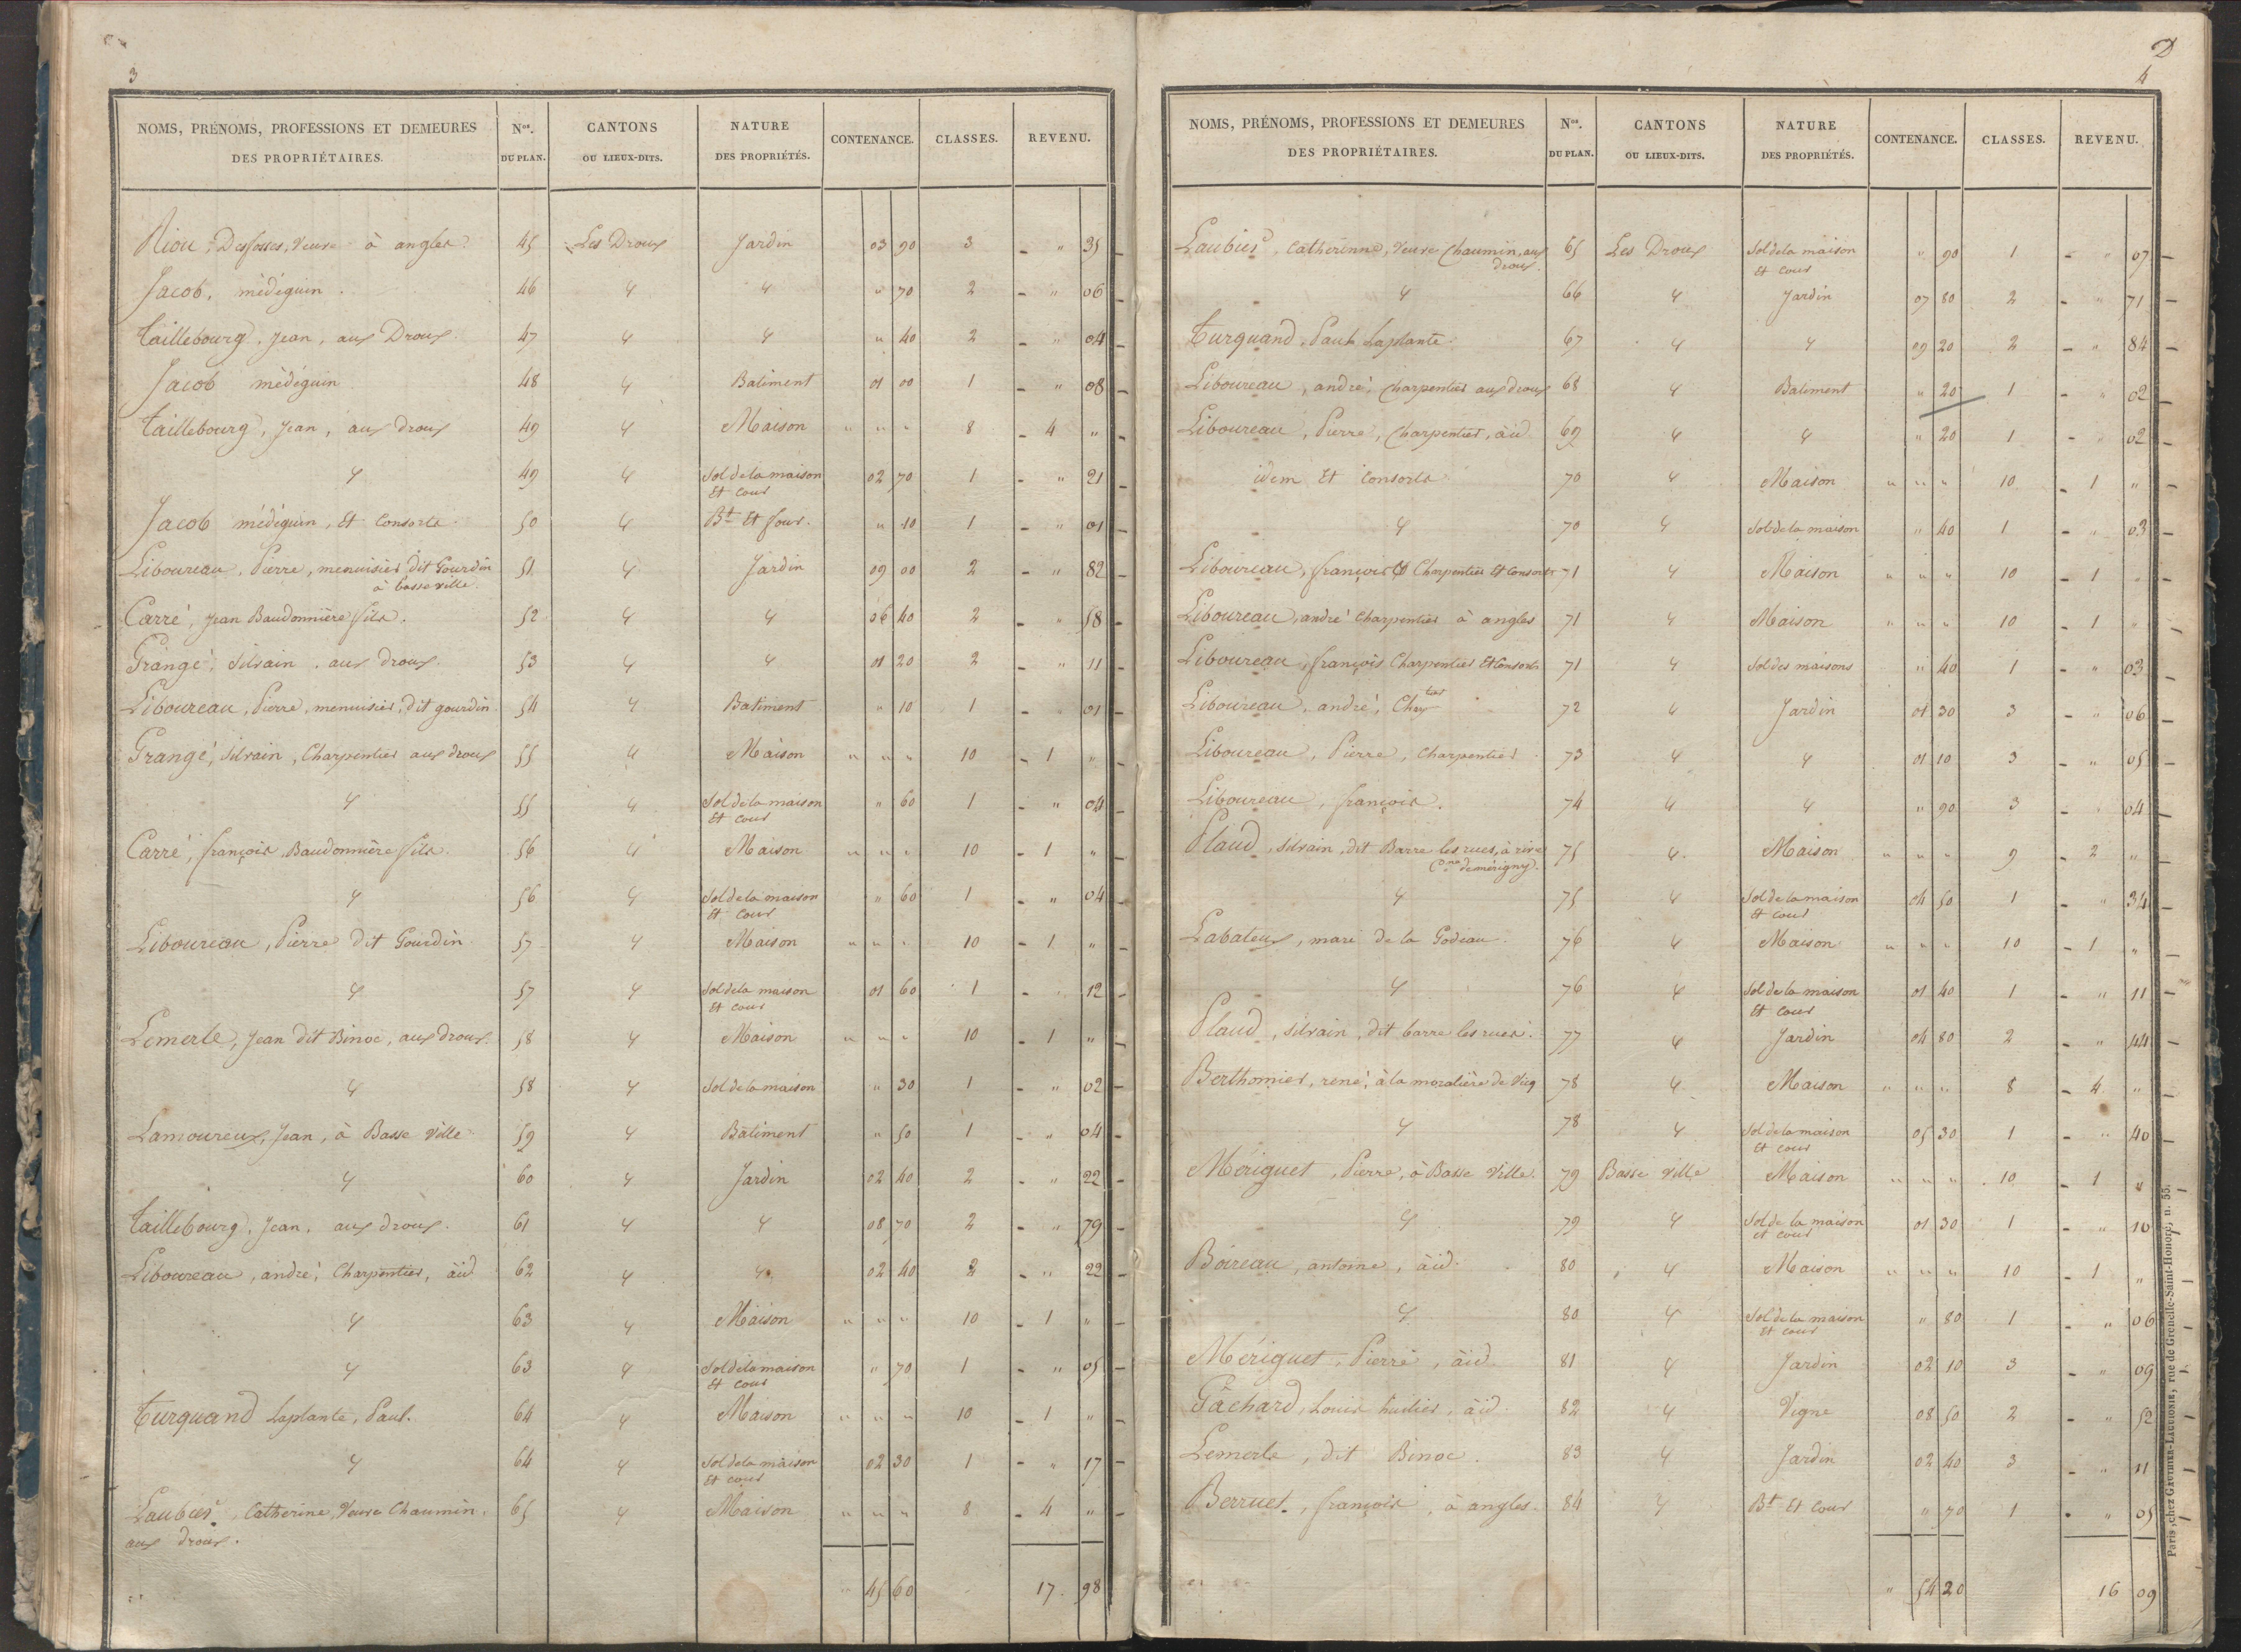 3
NOMS, PRÉNOMS, PROFESSIONS ET DEMEURES DES PROPRIÉTAIRES. Nos. DU PLAN. CANTONS OU LIEUX-DITS. NATURE DES PROPRIÉTÉS. CONTENANCE. CLASSES. REVENU.
Riou, Desfosses, Veuve à angles 45 Les Droux Jardin 03 90 3 - " 35
Jacob, médéguin. 46 " " " 70 2 - " 06
Taillebourg, Jean, aux Droux. 47 " " " 40 2 - " 04
Jacob médéguin 48 " Batiment 01 00 1 - " 08
Taillebourg, Jean, aux droux 49 " Maison " " " 8 - 4 "
" 49 " Sol de la maison 02 70 1 - " 21
Et cour
Jacob médéguin, Et Consorts. 50 " Bt Et four. " 10 1 - " 01
Liboureau, Pierre, menuisier dit Gourdin 51 " Jardin 09 00 2 - " 82
à basse ville.
Carré, Jean Baudonnière fils. 52 " " 06 40 2 - " 58
Grangé, Silvain, aux droux. 53 " " 01 20 2 - " 11
Liboureau, Pierre, menuisier, dit gourdin 54 " Batiment " 10 1 - 01
Grangé, Silvain, Charpentier aux droux 55 " Maison " " " 10 - 1 "
" 55 " Sol de la maison " 60 1 - " 04
Et cour
Carré, françois, Baudonnière fils. 56 " Maison " " " 10 - 1 "
" 56 " Sol de la maison " 60 1 - " 04
Et cour
Liboureau, Pierre dit Gourdin. 57 " Maison " " " 10 - 1 "
" 57 " Sol de la maison 01 60 1 - 12
Et cour
Lemerle, Jean dit Binoc, aux droux. 58 " Maison " " " 10 - 1 "
" 58 " Sol de la maison " 30 1 - " 02
Lamoureux, Jean, à Basse Ville 59 " Bâtiment " 50 1 - " 04
" 60 " Jardin 02 40 2 - " 22
Taillebourg, Jean, aux droux. 61 " " 08 70 2 - " 79
Liboureau, andré, Charpentier, àid 62 " " 02 40 2 - " 22
" 63 " Maison " " " 10 - 1 "
" 63 " Sol de la maison " 70 1 - " 05
Et cour
Turquand Laplante, Paul. 64 " Maison " " " 10 - 1 "
" 64 " Sol de la maison 02 30 1 - " 17
Et cour
Laubier, Catherine, Veuve Chaumin, 65 " Maison " " " 8 - 4 "
aux droux.
" 45 60 17 98
4
NOMS, PRÉNOMS, PROFESSIONS ET DEMEURES DES PROPRIÉTAIRES. Nos. DU PLAN. CANTONS OU LIEUX-DITS. NATURE DES PROPRIÉTÉS. CONTENANCE. CLASSES. REVENU.
Laubier, Catherinne, Veuve Chaumin, aux 65 Les Droux Sol de la maison " 90 1 - " 07
droux. Et cour
" 66 " Jardin 07 80 2 - " 71
Turquand, Paul Laplante. 67 " " 09 20 2 - " 84
Liboureau, andré, Charpentier aux droux 68 " Batiment " 20 1 - " 02
Liboureau, Pierre, Charpentier, àid 69 " " " 20 1 - " 02
idem Et Consorts 70 " Maison " " " 10 - 1 "
" 70 " Sol de la maison " 40 1 - " 03
Liboureau, françois Charpentier Et Consorts 71 " Maison " " " 10 - 1 "
Liboureau, andré Charpentier à angles 71 " Maison " " " 10 - 1 "
Liboureau, françois Charpentier Et Consorts 71 " Sol des maisons " 40 1 - " 03
Liboureau, andré, Chartier 72 " Jardin 01 30 3 - " 06
Liboureau, Pierre, Charpentier 73 " " 01 10 3 - " 05
Liboureau, françois. 74 " " " 90 3 - " 04
Plaud, silvain, dit Barre les rues, à rives 75 " Maison " " " 9 - 2 "
Cne de mérigny.
" 75 " Sol de la maison 04 50 1 - " 34
Et cour
Labateux, mari de la Godeau. 76 " Maison " " " 10 - 1 "
" 76 " Sol de la maison 01 40 1 - " 11
Et cour
Plaud, silvain, dit barre les rues. 77 " Jardin 04 80 2 - " 44
Berthomier, rené, à la moralière de Vicq 78 " Maison " " " 8 - 4 "
" 78 " Sol de la maison 05 30 1 - " 40
Et cour
Mériguet, Pierre, à Basse Ville. 79 Basse Ville Maison " " " 10 - 1 "
" 79 " Sol de la maison 01 30 1 - " 10
et cour
Boireau, antoine, àid. 80 " Maison " " " 10 - 1 "
" 80 " Sol de la maison " 80 1 - " 06
Et cour
Mériguet, Pierre, àid. 81 " Jardin 02 10 3 - " 09
Gâchard, Louis huilier, àid. 82 " Vigne 08 50 2 - " 52
Lemerle, dit Binoc. 83 " Jardin 02 40 3 - " 11
Berruet, françois, à angles. 84 " Bt Et Cour " 70 1 - " 05
" 54 20 16 09
Paris, chez GAUTHIER-LAGUIONIE, rue de Grenelle-Saint-Honoré, n. 55.